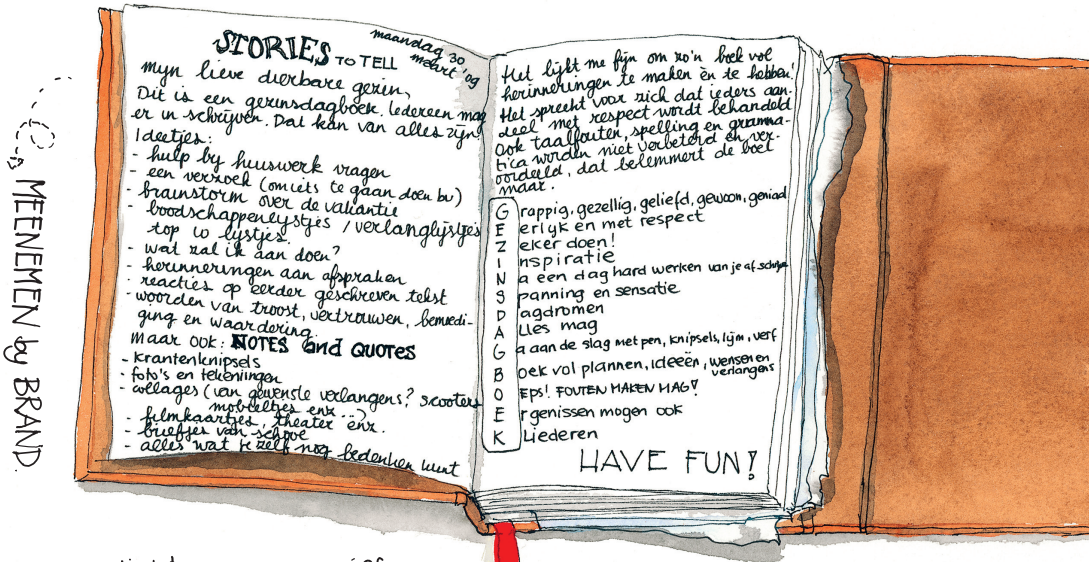 STORIES TO TELL
maandag 30
maart '09
Mijn lieve dierbare gezin,
Dit is een gezinsdagboek. Iedereen mag
er in schrijven. Dat kan van alles zijn!
Ideetjes:
- hulp bij huiswerk vragen
- een verzoek (om iets te gaan doen bv)
- brainstorm over de vakantie
- boodschappenlijstjes / verlanglijstjes
top 10 lijstjes.
- wat zal ik aan doen?
- herinneringen aan afspraken
- reacties op eerder geschreven tekst
- woorden van troost, vertrouwen, bemoedi-
ging en waardering.
Maar ook: NOTES and QUOTES
- krantenknipsels
- foto's en tekeningen
- collages (van gewenste verlangens? scooters
mobieltjes enz...)
- filmkaartjes, theater enz.
- briefjes van school
- alles wat je zelf nog bedenken kunt
Het lijkt me fijn om zo'n boek vol
herinneringen te maken en te hebben!
Het spreekt voor zich dat ieders aan-
deel met respect wordt behandeld
Ook taalfouten, spelling en gramma-
tica worden niet verbeterd en ver-
oordeeld, dat belemmert de boel
maar.
Grappig, gezellig, geliefd, gewoon, geniaal
Eerlijk en met respect
Zeker doen!
Inspiratie
Na een dag hard werken van je af schrijven
Spanning en sensatie
Dagdromen
Alles mag
Ga aan de slag met pen, knipsels, lijm, verf
Boek vol plannen, ideeën, wensen en
verlangens
OEPS! FOUTEN MAKEN MAG!
Ergenissen mogen ook
Kliederen
HAVE FUN!
MEENEMEN by BRAND.